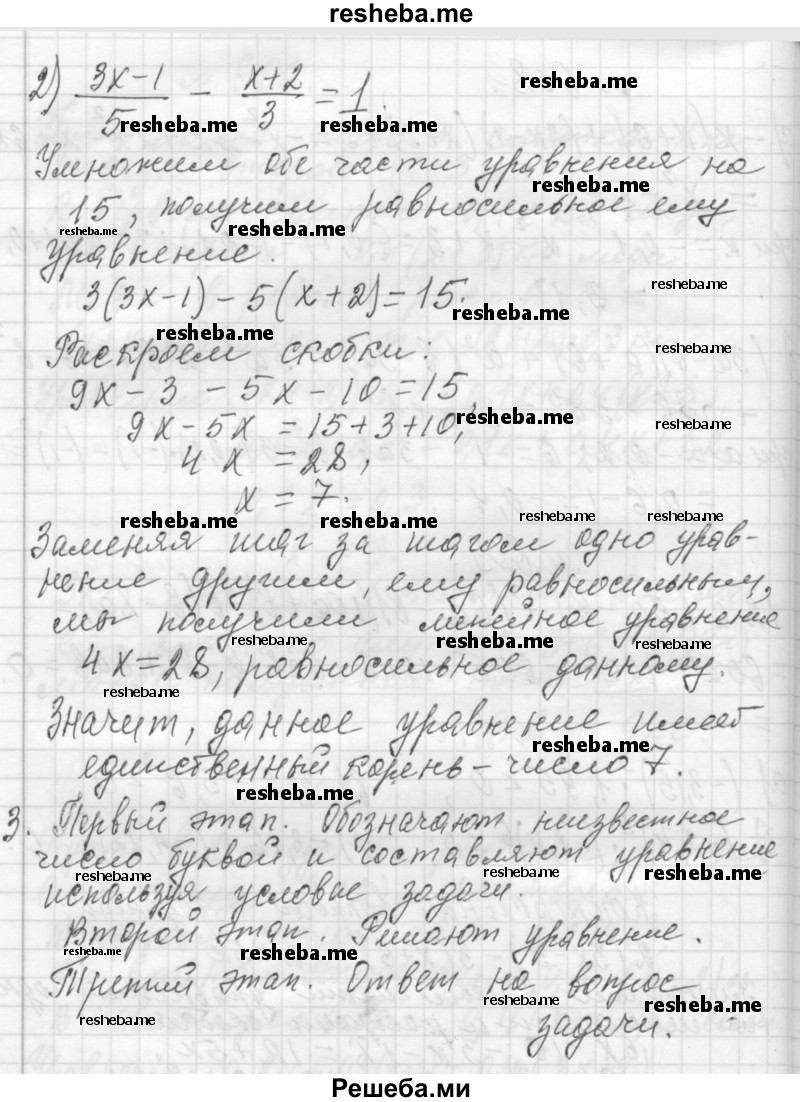 resheba.me
2) (3x-1)/5 - (x+2)/3 = 1.
resheba.me resheba.me resheba.me
Умножим обе части уравнения на
resheba.me
15, получим равносильное ему
resheba.me resheba.me
уравнение.
3(3x-1) - 5(x+2) = 15.
resheba.me resheba.me
resheba.me
Раскроем скобки:
resheba.me
9x - 3 - 5x - 10 = 15,
9x - 5x = 15 + 3 + 10,
resheba.me resheba.me
4x = 28,
x = 7.
resheba.me resheba.me resheba.me resheba.me
Заменяя шаг за шагом одно урав-
нение другим, ему равносильным,
мы получили линейное уравнение
resheba.me resheba.me resheba.me
4x = 28, равносильное данному.
resheba.me
Значит, данное уравнение имеет
resheba.me
единственный корень - число 7.
resheba.me
3. Первый этап. Обозначают неизвестное
число буквой и составляют уравнение
resheba.me resheba.me resheba.me
используя условие задачи.
Второй этап. Решают уравнение.
resheba.me resheba.me
Третий этап. Ответ на вопрос
resheba.me resheba.me
resheba.me
задачи.
Решеба.ми